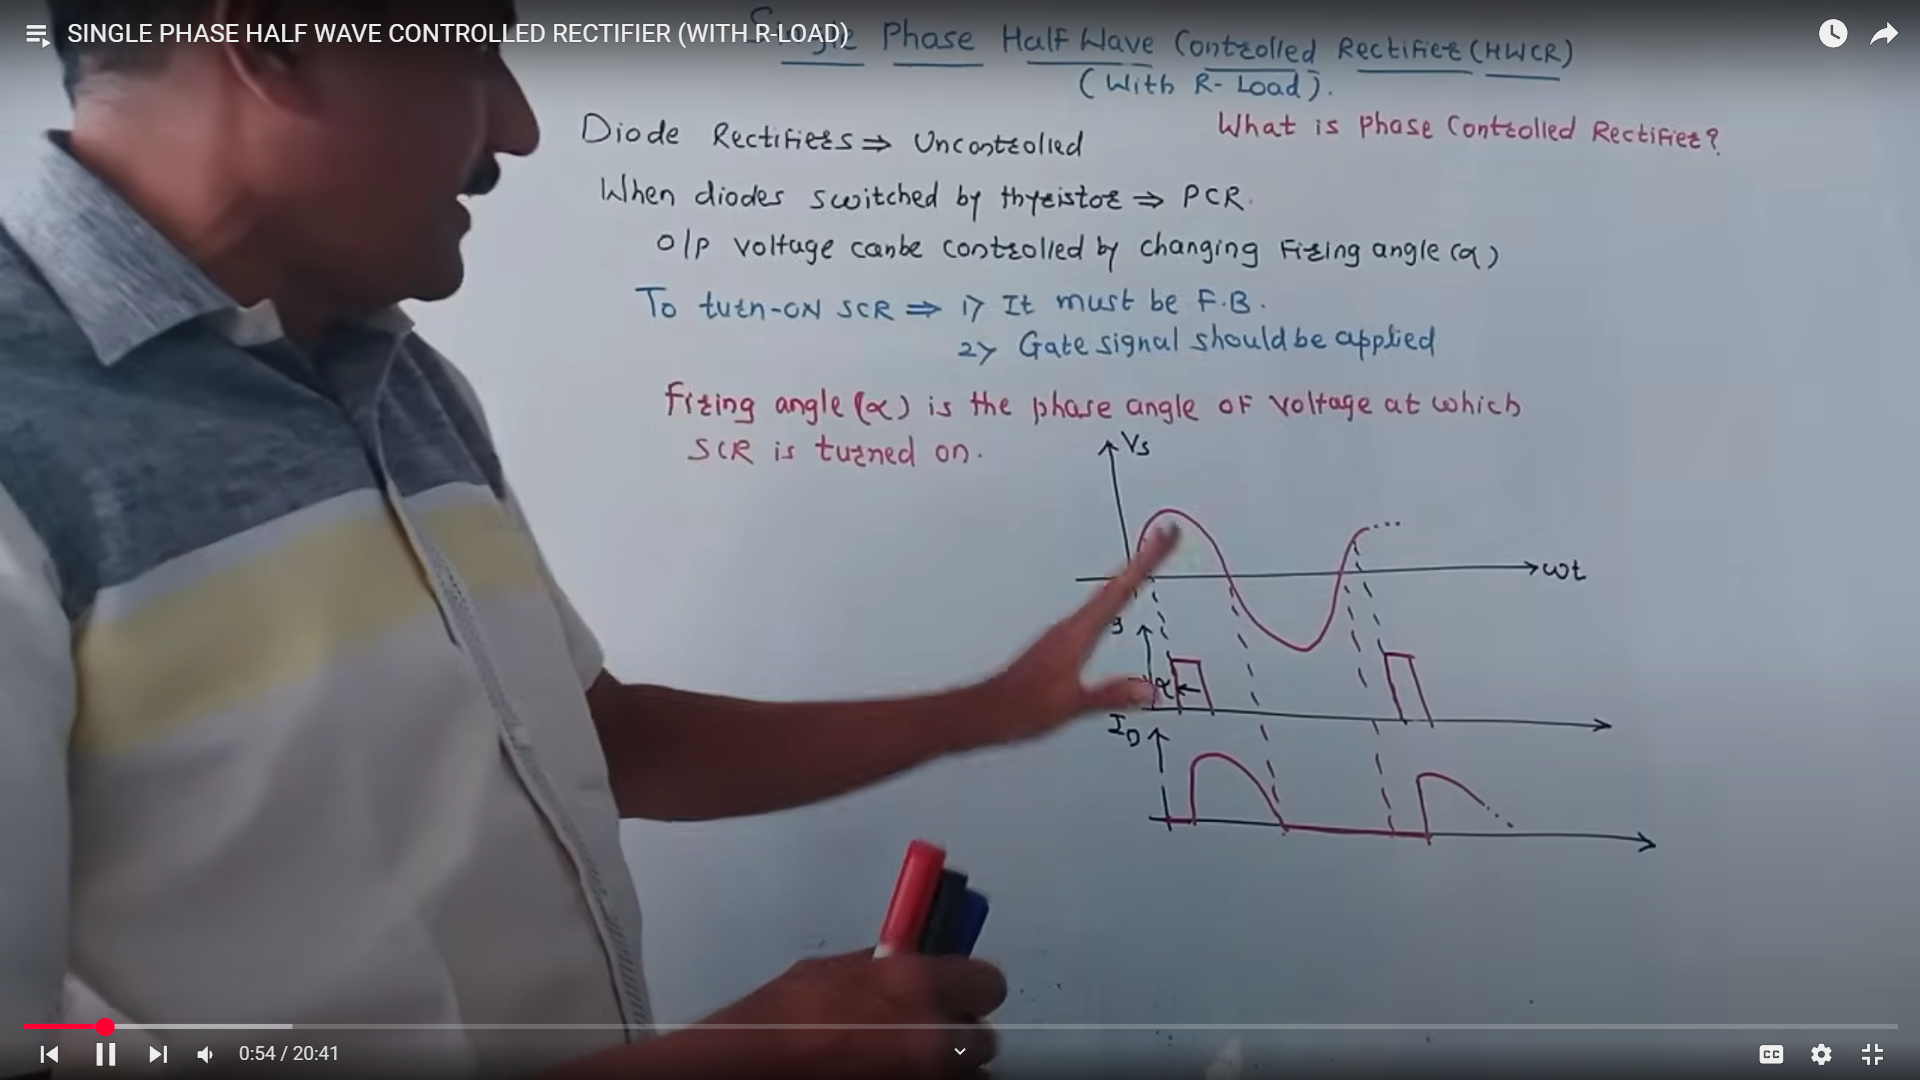 SINGLE PHASE HALF WAVE CONTROLLED RECTIFIER (WITH R-LOAD)
Single Phase Half Wave Controlled Rectifier (HWCR)
(With R-Load).
What is Phase Controlled Rectifier?
Diode Rectifiers ⇒ Uncontrolled
When diodes switched by thyristor ⇒ PCR.
O/P voltage canbe controlled by changing Firing angle (α)
To turn-ON SCR ⇒ 1> It must be F.B.
2> Gate signal should be applied
Firing angle (α) is the phase angle of voltage at which
SCR is turned on.
Vs
ωt
g
α
ID
0:54 / 20:41
CC